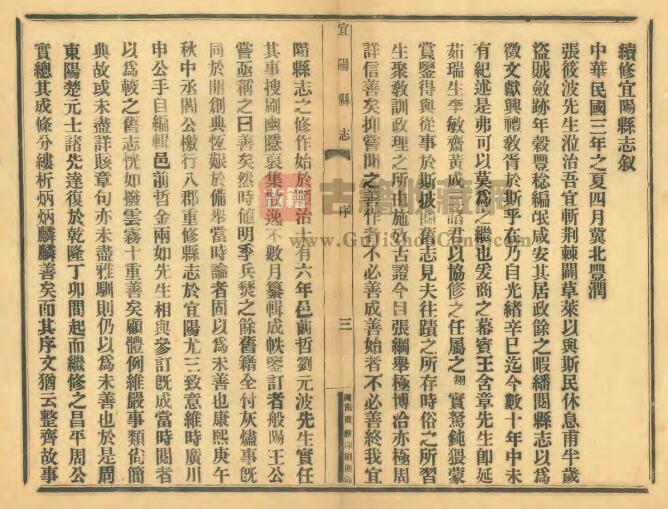 續修宜陽縣志敘
中華民國三年之夏四月冀北豐潤
張筱波先生涖治吾宜斬荆棘闢草萊以與斯民休息甫半歲
盜賊斂跡年穀豐稔編氓咸安其居政餘之暇繙閱縣志以爲
徵文獻興禮敎胥於斯乎在乃自光緒辛巳迄今數十年中未
有紀述是弗可以莫爲之繼也爰商之幕賓王含章先生卽延
茹瑞生李敏齋黃成 諸君以協修之任屬之 翎 實駑鈍猥蒙
賞鑒得與從事於斯披 舊志見夫往蹟之所存時俗之所習
生聚敎訓政理之所由施攷古證今目張綱舉極博洽亦極周
詳信善矣抑嘗聞之善作者不必善成善始者不必善終我宜
宜陽縣志
序
三
河南商務印刷所印
陽縣志之修作始於順治十有六年邑前哲劉元波先生實任
其事搜剔幽隱裒集散逸不數月纂輯成帙鑒訂者般陽王公
嘗亟稱之曰善矣然時值明季兵燹之餘舊籍全付灰燼事旣
同於開創典恆艱於備舉當時論者固以爲未善也康熙庚午
秋中丞閻公檄行八郡重修縣志於宜陽尤三致意維時廣川
申公手自編輯邑前哲金兩如先生相與參訂旣成當時閱者
以爲較之舊志恍如撥雲霧十重善矣顧體例維嚴事類尙簡
典故或未盡詳賅章句亦未盡雅馴則仍以爲未善也於是周
東陽楚元士諸先達復於乾隆丁卯間起而繼修之昌平周公
實總其成條分縷析炳炳麟麟善矣而其序文猶云整齊故事
古籍收藏网
www.GuJiShouCang.com